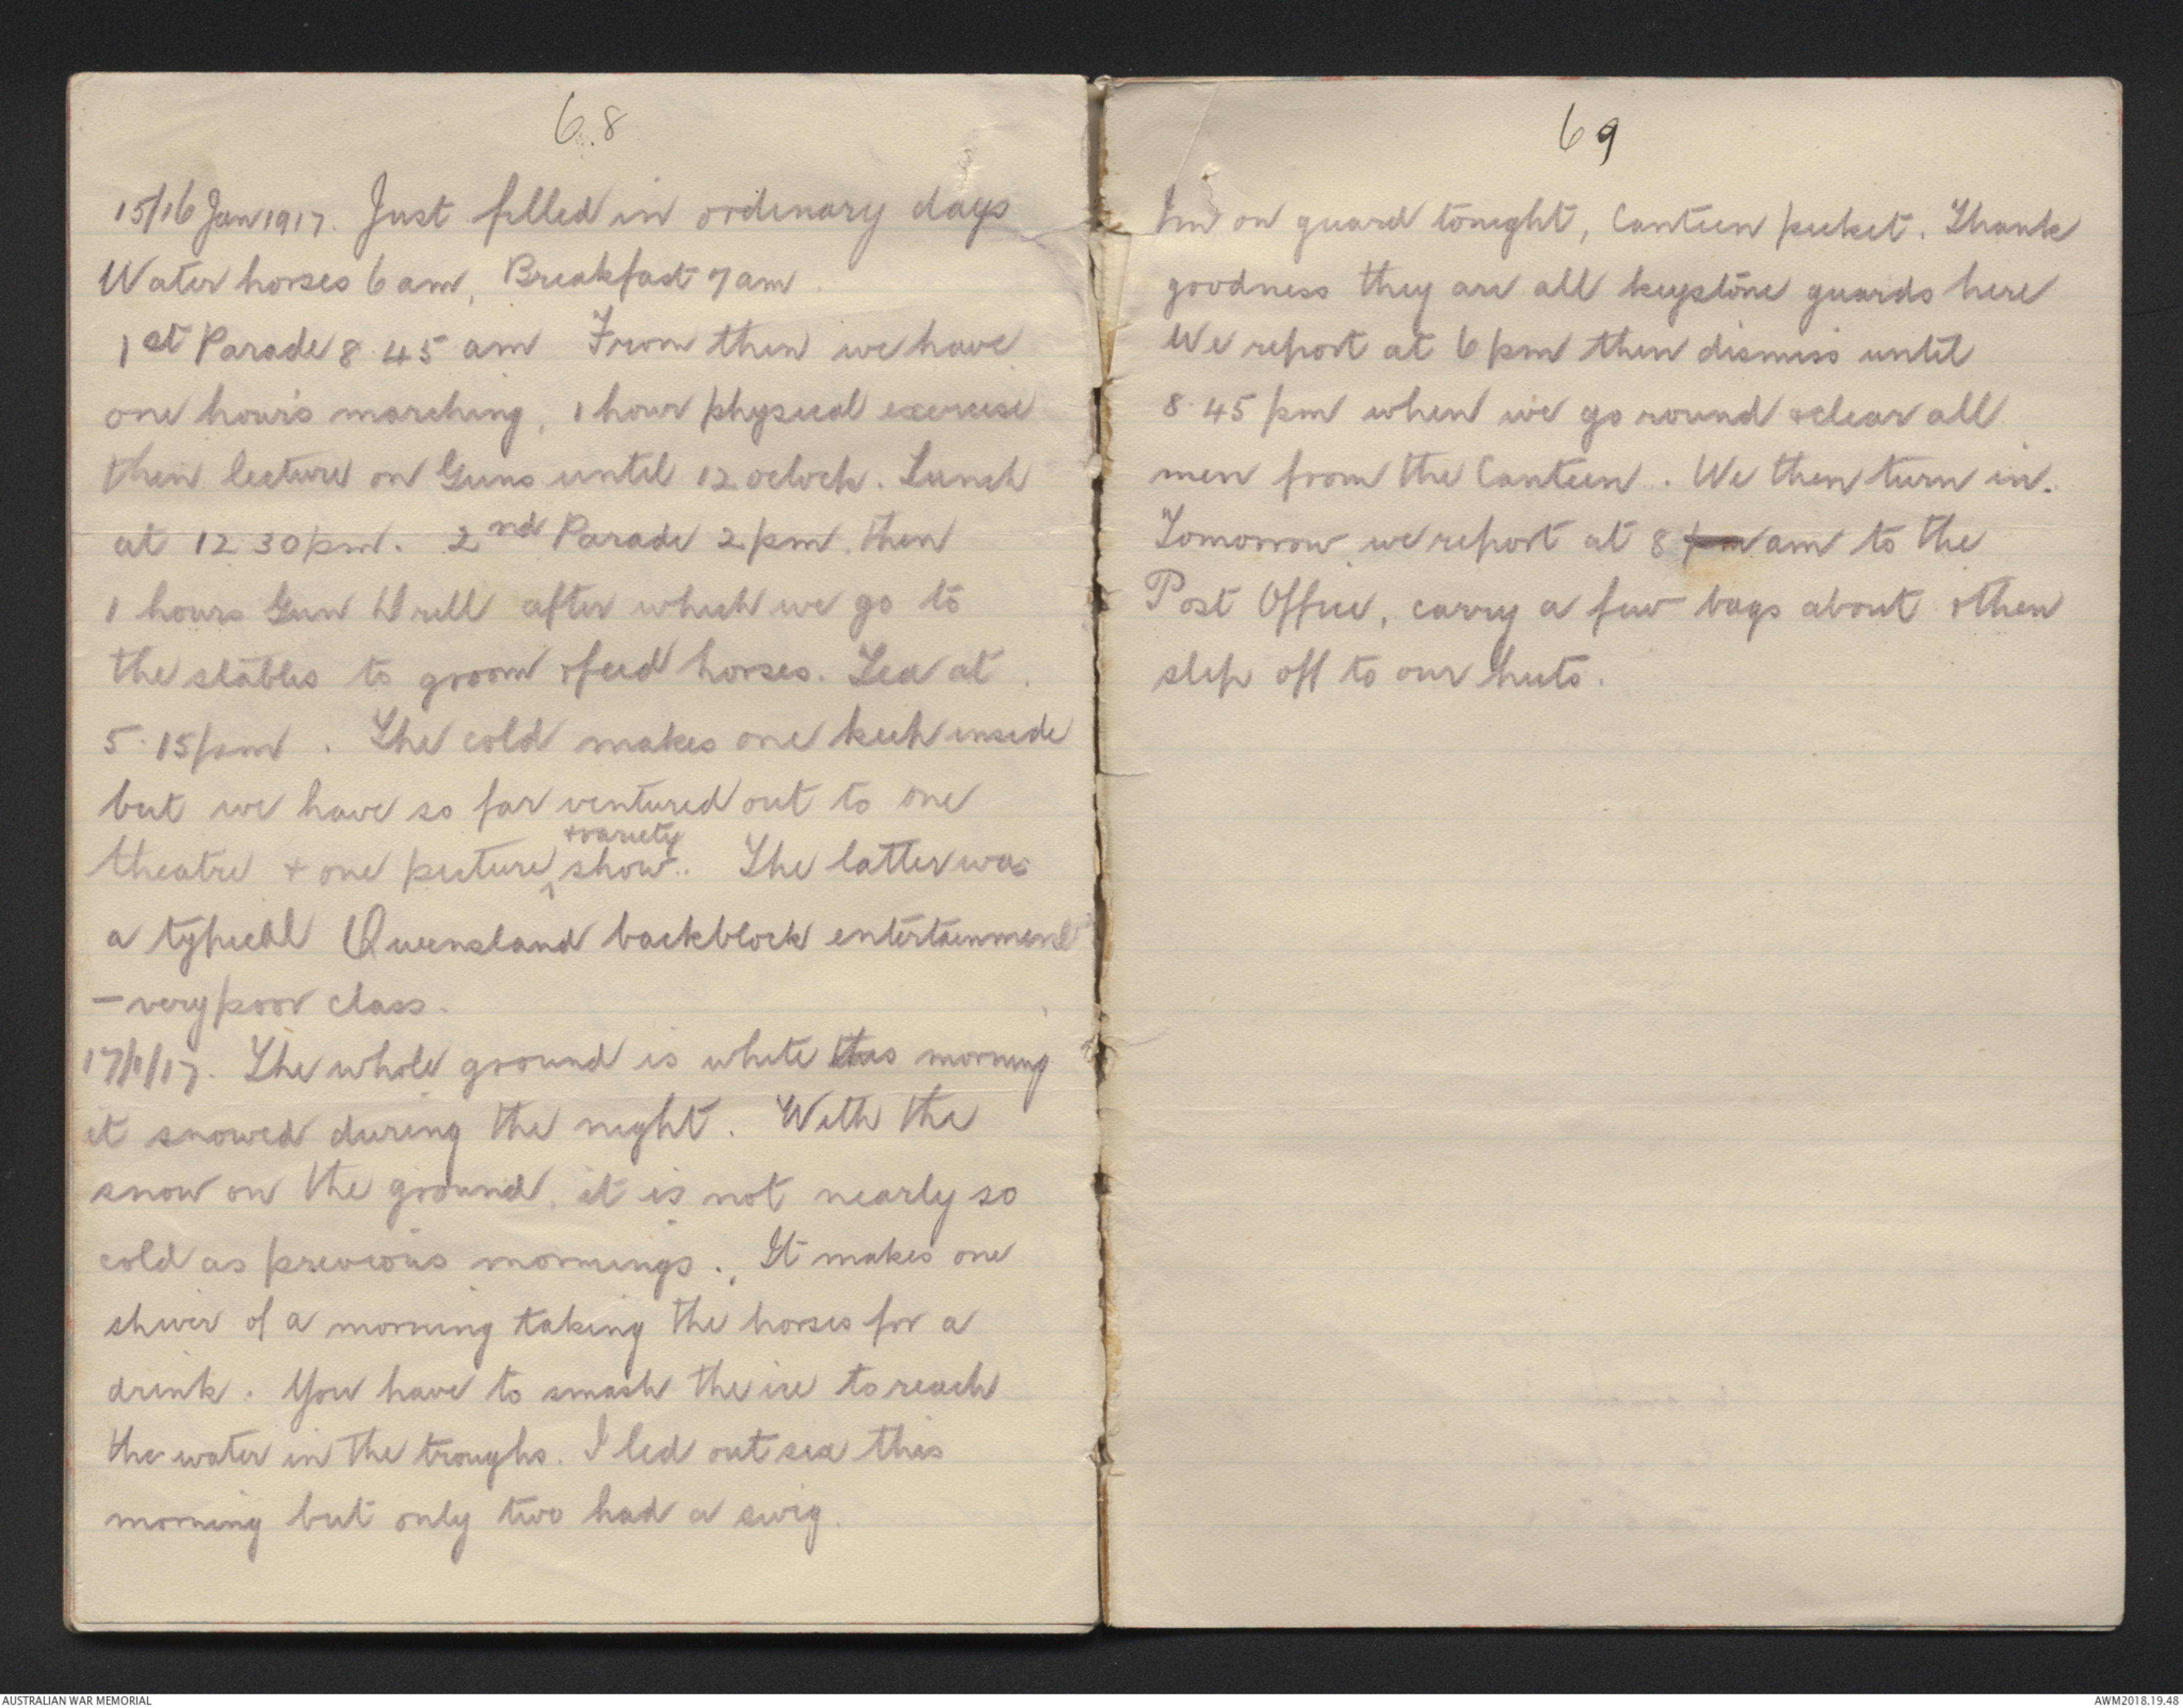 68
15/16 Jan 1917. Just filled in ordinary days
Water horses 6 am, Breakfast 7 am.
1st Parade 8.45 am From then we have
one hour's marching, 1 hour physical exercise
then lecture on Guns until 12 oclock. Lunch
at 12 30 pm. 2nd Parade 2 pm. then
1 hours Gun Drill after which we go to
the stables to groom & feed horses. Tea at
5.15 pm. The cold makes one keep inside
but we have so far ventured out to one
theatre + one picture ^ + variety show. The latter was
a typical Queensland backblock entertainment
- very poor class.
17/1/17. The whole ground is white this morning
it snowed during the night. With the
snow on the ground, it is not nearly so
cold as previous mornings. It makes one
shiver of a morning taking the horses for a
drink. You have to smash the ice to reach
the water in the troughs. I led out six this
morning but only two had a swig.
69
Im on guard tonight, Canteen picket. Thank
goodness they are all keystone guards here
We report at 6 pm then dismiss until
8.45 pm when we go round & clear all
men from the Canteen. We then turn in.
Tomorrow we report at 8 pm am to the
Post Office, carry a few bags about & then
slip off to our huts.
AUSTRALIAN WAR MEMORIAL
AWM2018.19.48